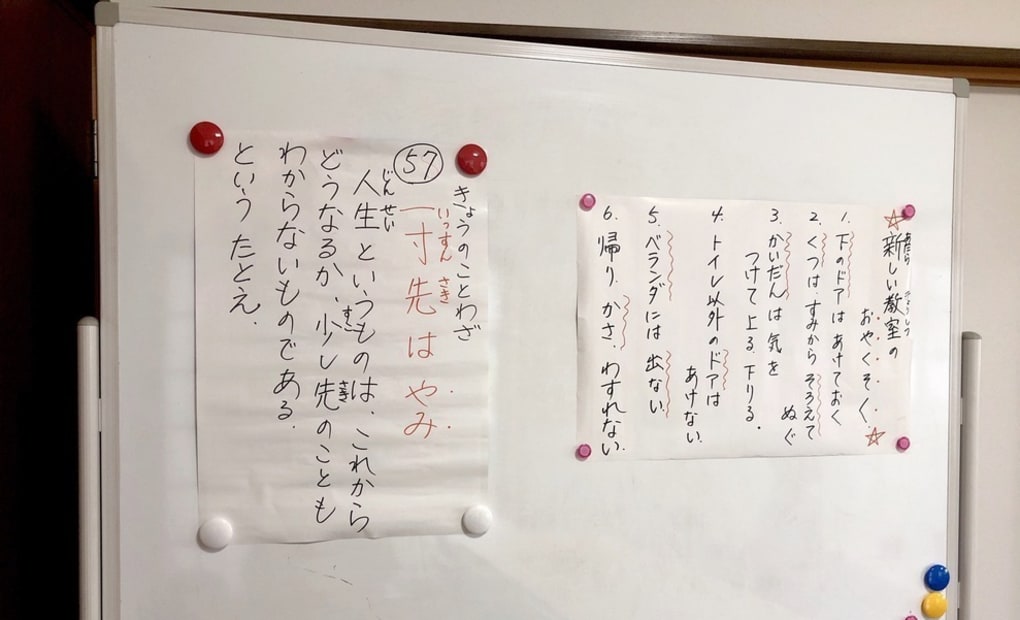 ☆新しい教室の
おやくそく☆
1. 下のドアはあけておく
2. くつは、すみからそろえて
ぬぐ
3. かいだんは気を
つけて上る、下りる。
4. トイレ以外のドアは
あけない。
5. ベランダには出ない。
6. 帰り、かさ、わすれない。
きょうのことわざ
57 一寸先はやみ
いっすん さき
人生というものは、これから
じんせい
どうなるか、少し先のことも
すこ さき
わからないものである
という たとえ.